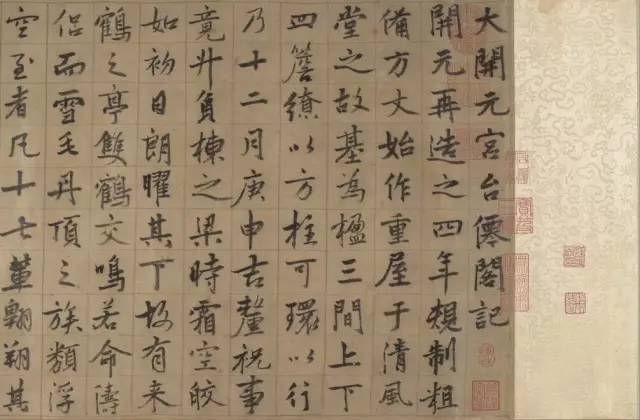 大開元宮台僊閣記
開元再造之四年規制粗
備方丈始作重屋于清風
堂之故基為楹三間上下
四簷繚以方柱可環以行
乃十二月庚申吉釐祝事
竟升負棟之梁時霜空皎
如初日朗曜其下故有来
鶴之亭雙鶴交鳴若命儔
侣而雪毛丹頂之族類浮
空至者凡十七輩翱翔其